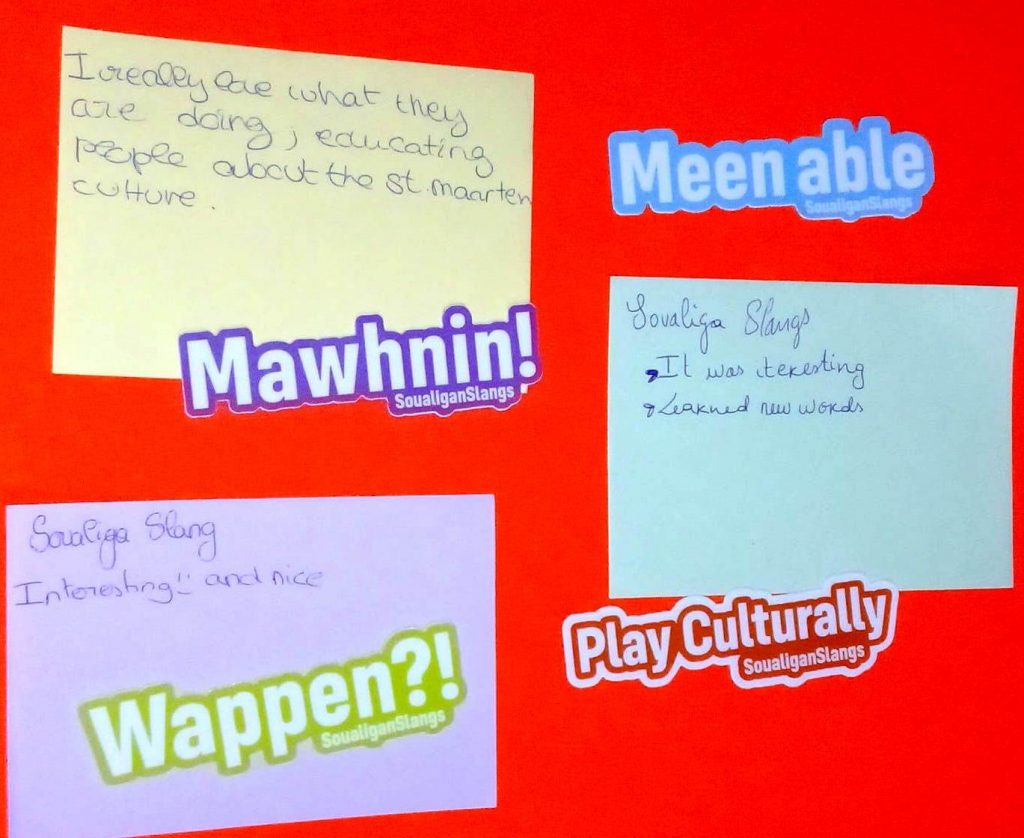 I really love what they
are doing, educating
people about the st. maarten
culture.
Mawhnin!
SoualiganSlangs
Meen able
SoualiganSlangs
Soualiga Slangs
It was iteresting
Learned new words
Play Culturally
SoualiganSlangs
Soualiga Slang
Interesting!! and nice
Wappen?!
SoualiganSlangs